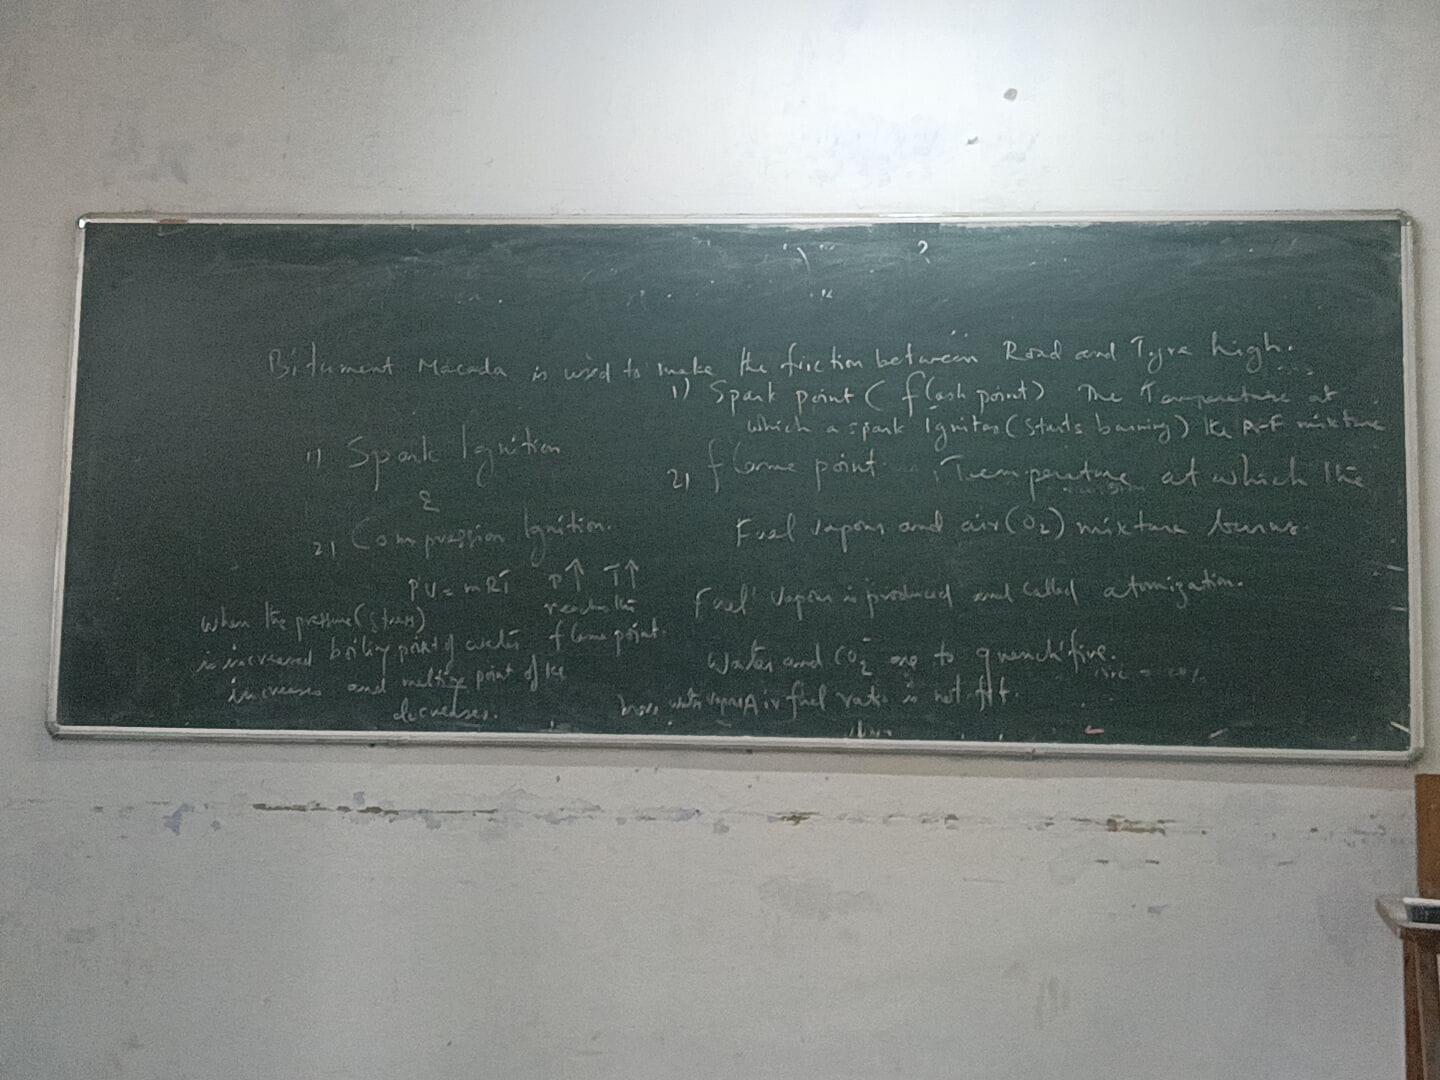 Bitument Macada is used to make the friction between Road and Tyre high.
1) Spark Ignition
&
2) Compression Ignition.
PV = mRT P↑ T↑
reaches the
flame point.
when the pressure (stress)
is increased boiling point of water
increases and melting point of Ice
decreases.
1) Spark point (flash point) The Temperature at
which a spark Ignites (starts burning) the A-F mixture
2) flame point Temperature at which the
Fuel vapour and air (O2) mixture burns.
Fuel vapour is produced and called atomization.
Water and CO2 are to quench fire.
Air fuel ratio is not fit.